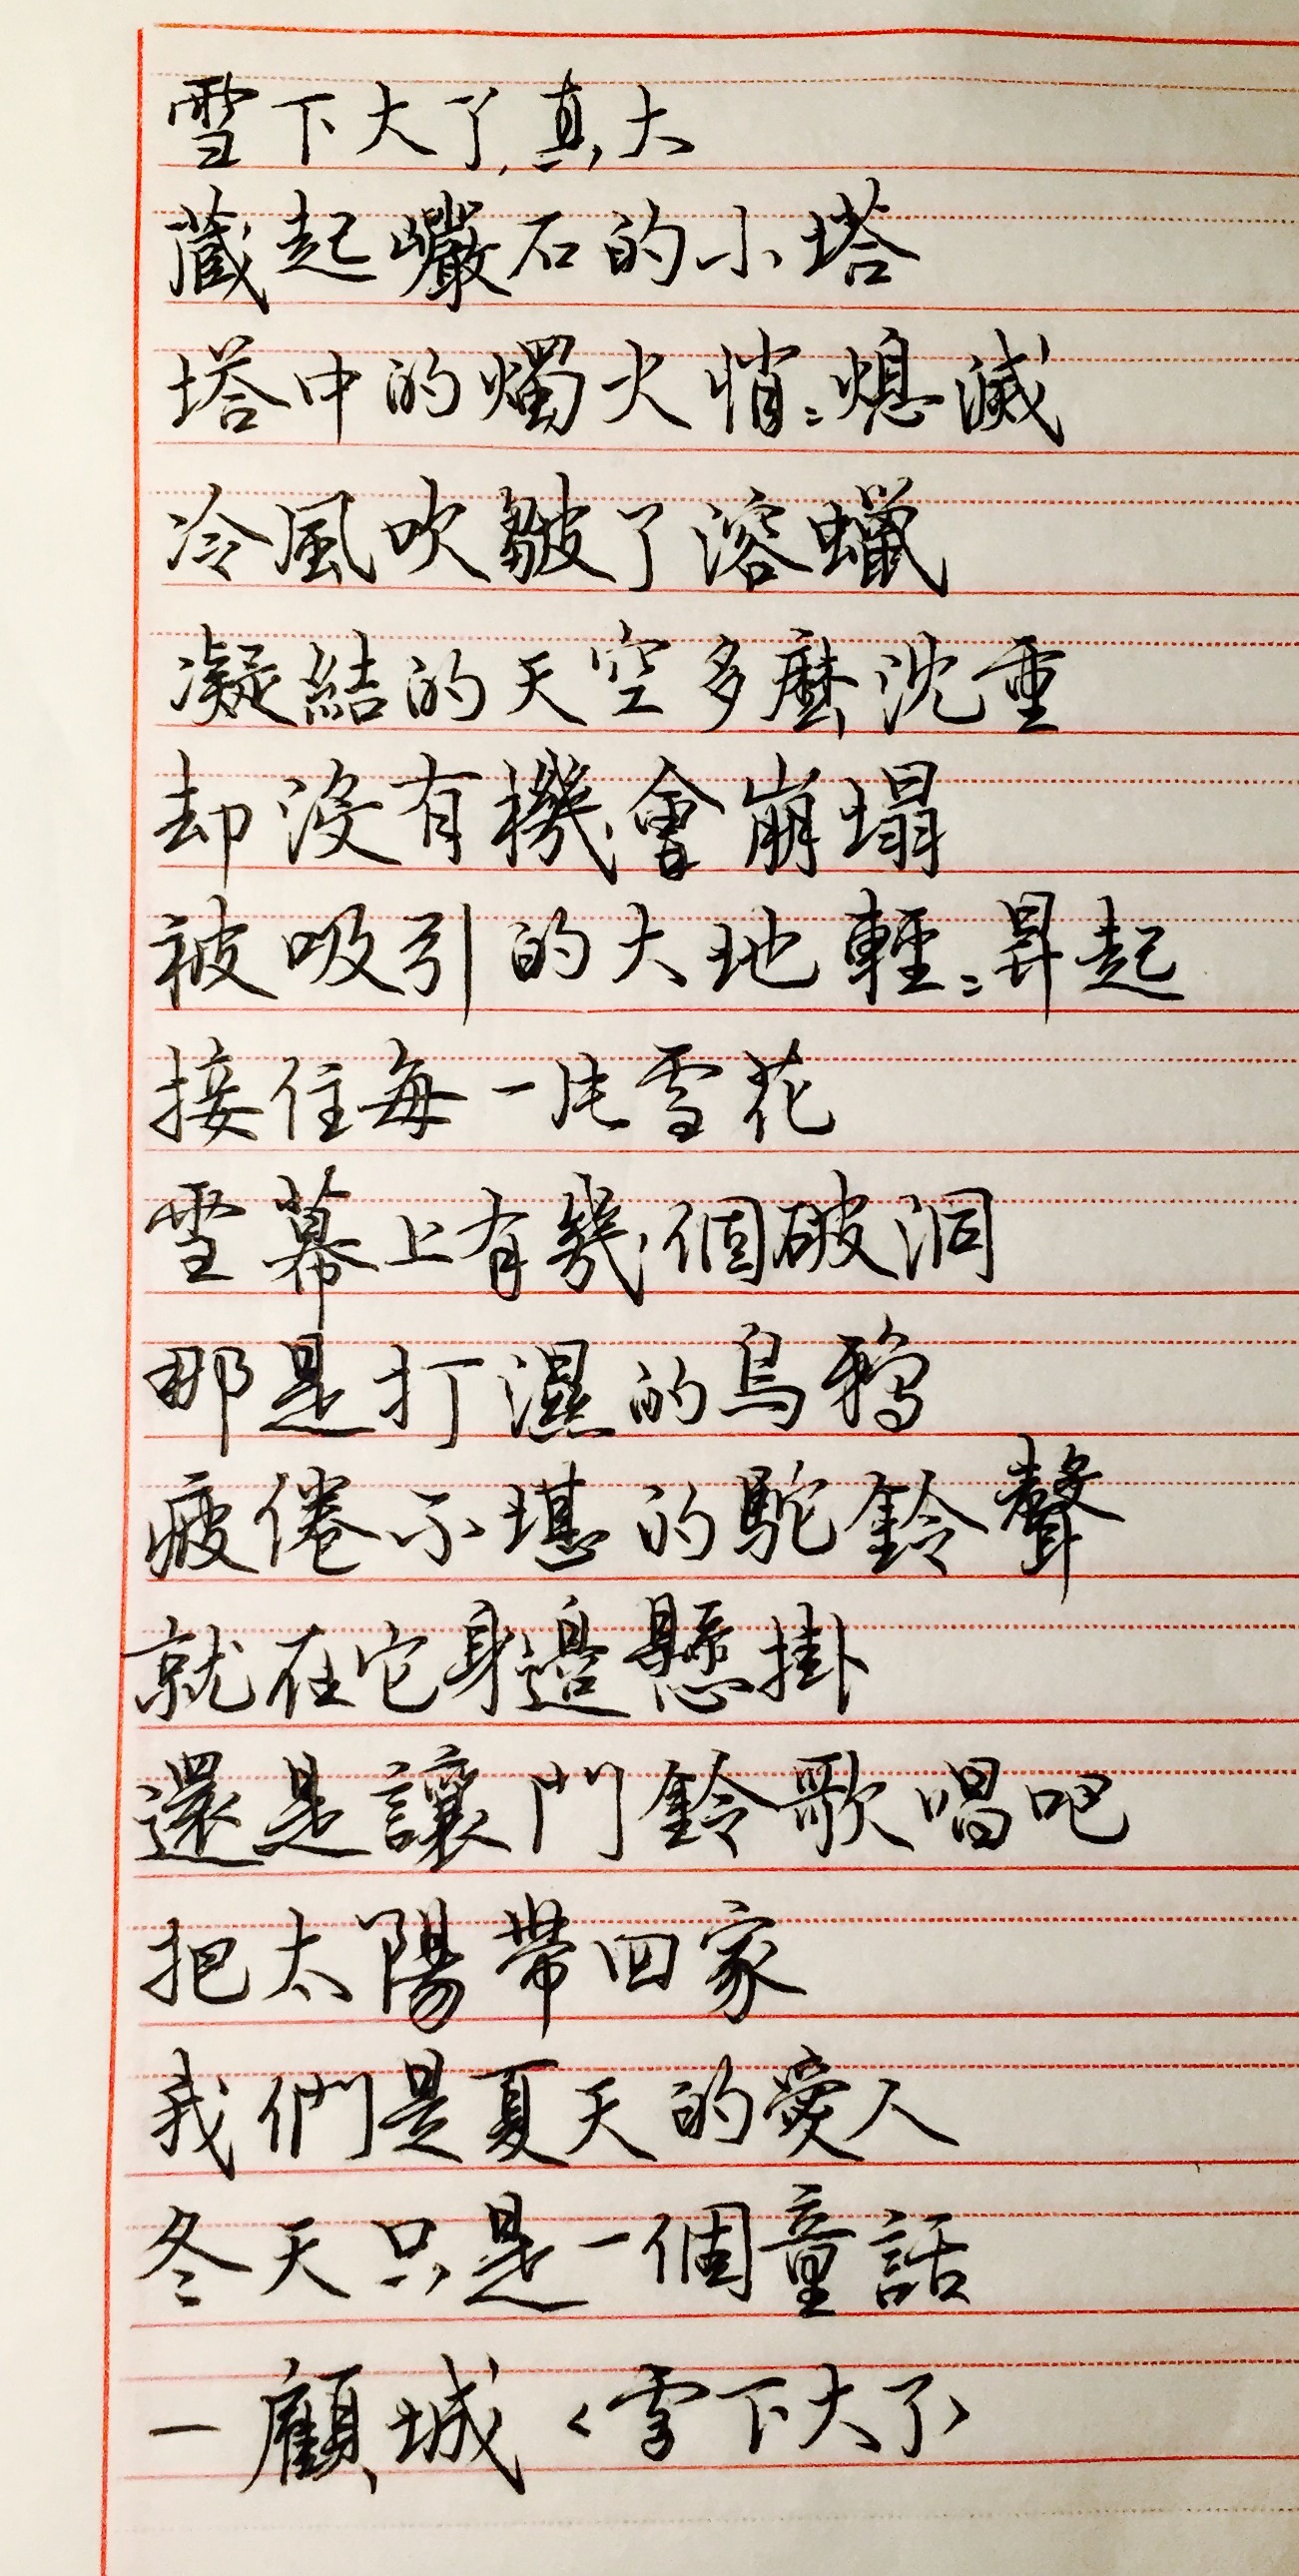 雪下大了,真大
藏起巖石的小塔
塔中的燭火悄〻熄滅
冷風吹皺了溶蠟
凝結的天空多麼沈重
却沒有機會崩塌
被吸引的大地輕〻昇起
接住每一片雪花
雪幕上有幾個破洞
那是打濕的烏鴉
疲倦不堪的駝鈴聲
就在它身邊懸掛
還是讓門鈴歌唱吧
把太陽帶回家
我們是夏天的愛人
冬天只是一個童話
—顧城〈雪下大了〉